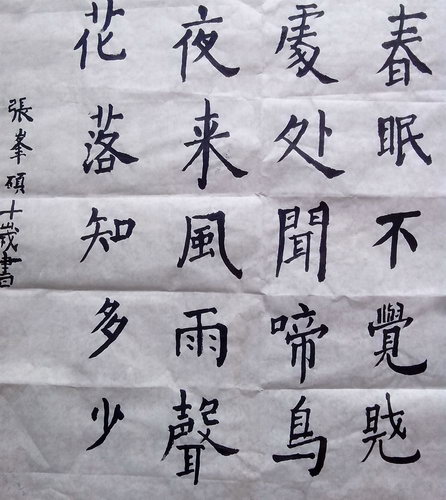 春眠不覺晓
處处聞啼鳥
夜来風雨聲
花落知多少
張峯碩十歲書